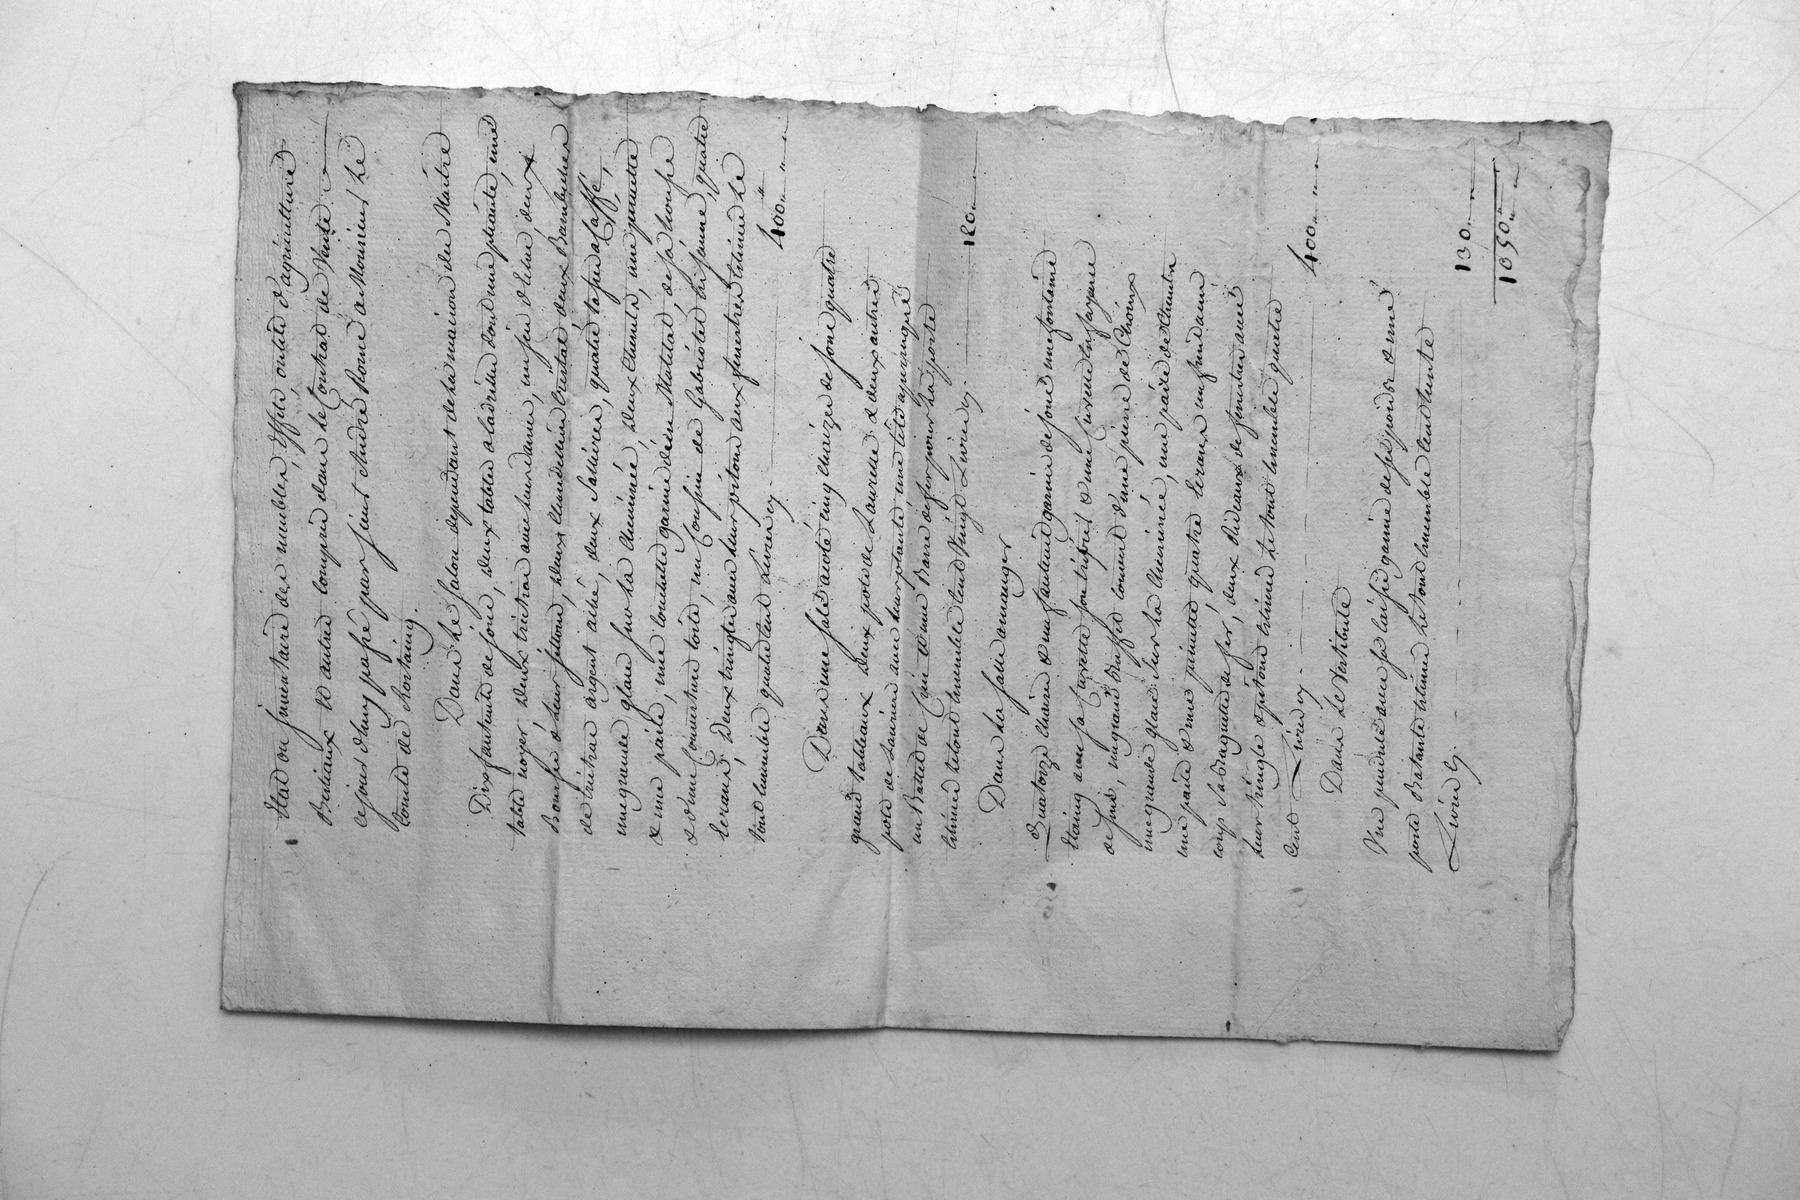 Etat ou jnventaire des meubles, Effets, outils d'agriculture
Bestiaux Et autres Compris dans le Contrat de Vente
cejourd'huy passé par sieur André Rome a Monsieur Le
Comte de Rostaing.
Dans Le Salon dependant de la maison du Maitre
Dix fauteuils de jonc, Deux tables a Cadries dont une pliante, une
table noyer Deux trictrac avec leur dame, un jeu d'Echec, deux
Bourse & leur jettons, Deux Chandelliers Cristal deux
de trictrac argent aché, deux Sallieres, quatre tasses a Caffé,
une grande glace sur la Cheminée, Deux Chenets, une pincette
& une paile, une Couchette garnie d'un Matelat, de sa housse
& d'une Couverture toile, un Coussin de Cabriolet bis jaune, quatre
Ecrans, Deux tringles avec leur pitons aux fenetres Estimés Le
tout Ensemble quatre Cent Livres Cy.
400" " "
Dans une Salle acoté cinq chaizes de jonc quatre
grand tableaux Deux pots de Laurelle & deux autres
pots de Lauriers avec leur plante, une tete a perruque
un Battet de Cuir & une Barre de fer pour la porte
Estimés le tout Ensemble Cent Vingt Livres Cy.
120" "
Dans La Salle a manger
Quatorze Chaises & un fauteuil garnis de jonc une fontaine
Etaing avec sa Cuvette son trépied & une Cuvette En fayance
de suite, un grand Buffet Couvert d'une pierre de Choin
une grande glace sur la Cheminée, une paire de Chenetn
une paile & une pincette, quatre Ecrans un
corps sa Braguette de fer, deux Rideaux de fenetres avec
Leur tringle & pitons Estimés Le tout Ensemble quatre
Cent Livres Cy.
400" " "
Dans Le Vestibule
Une pendule avec sa Caisse garnie de ses poids & une
porte Batante Estimés Le tout Ensemble Cent trente
Livres Cy.
130" "
1050" "